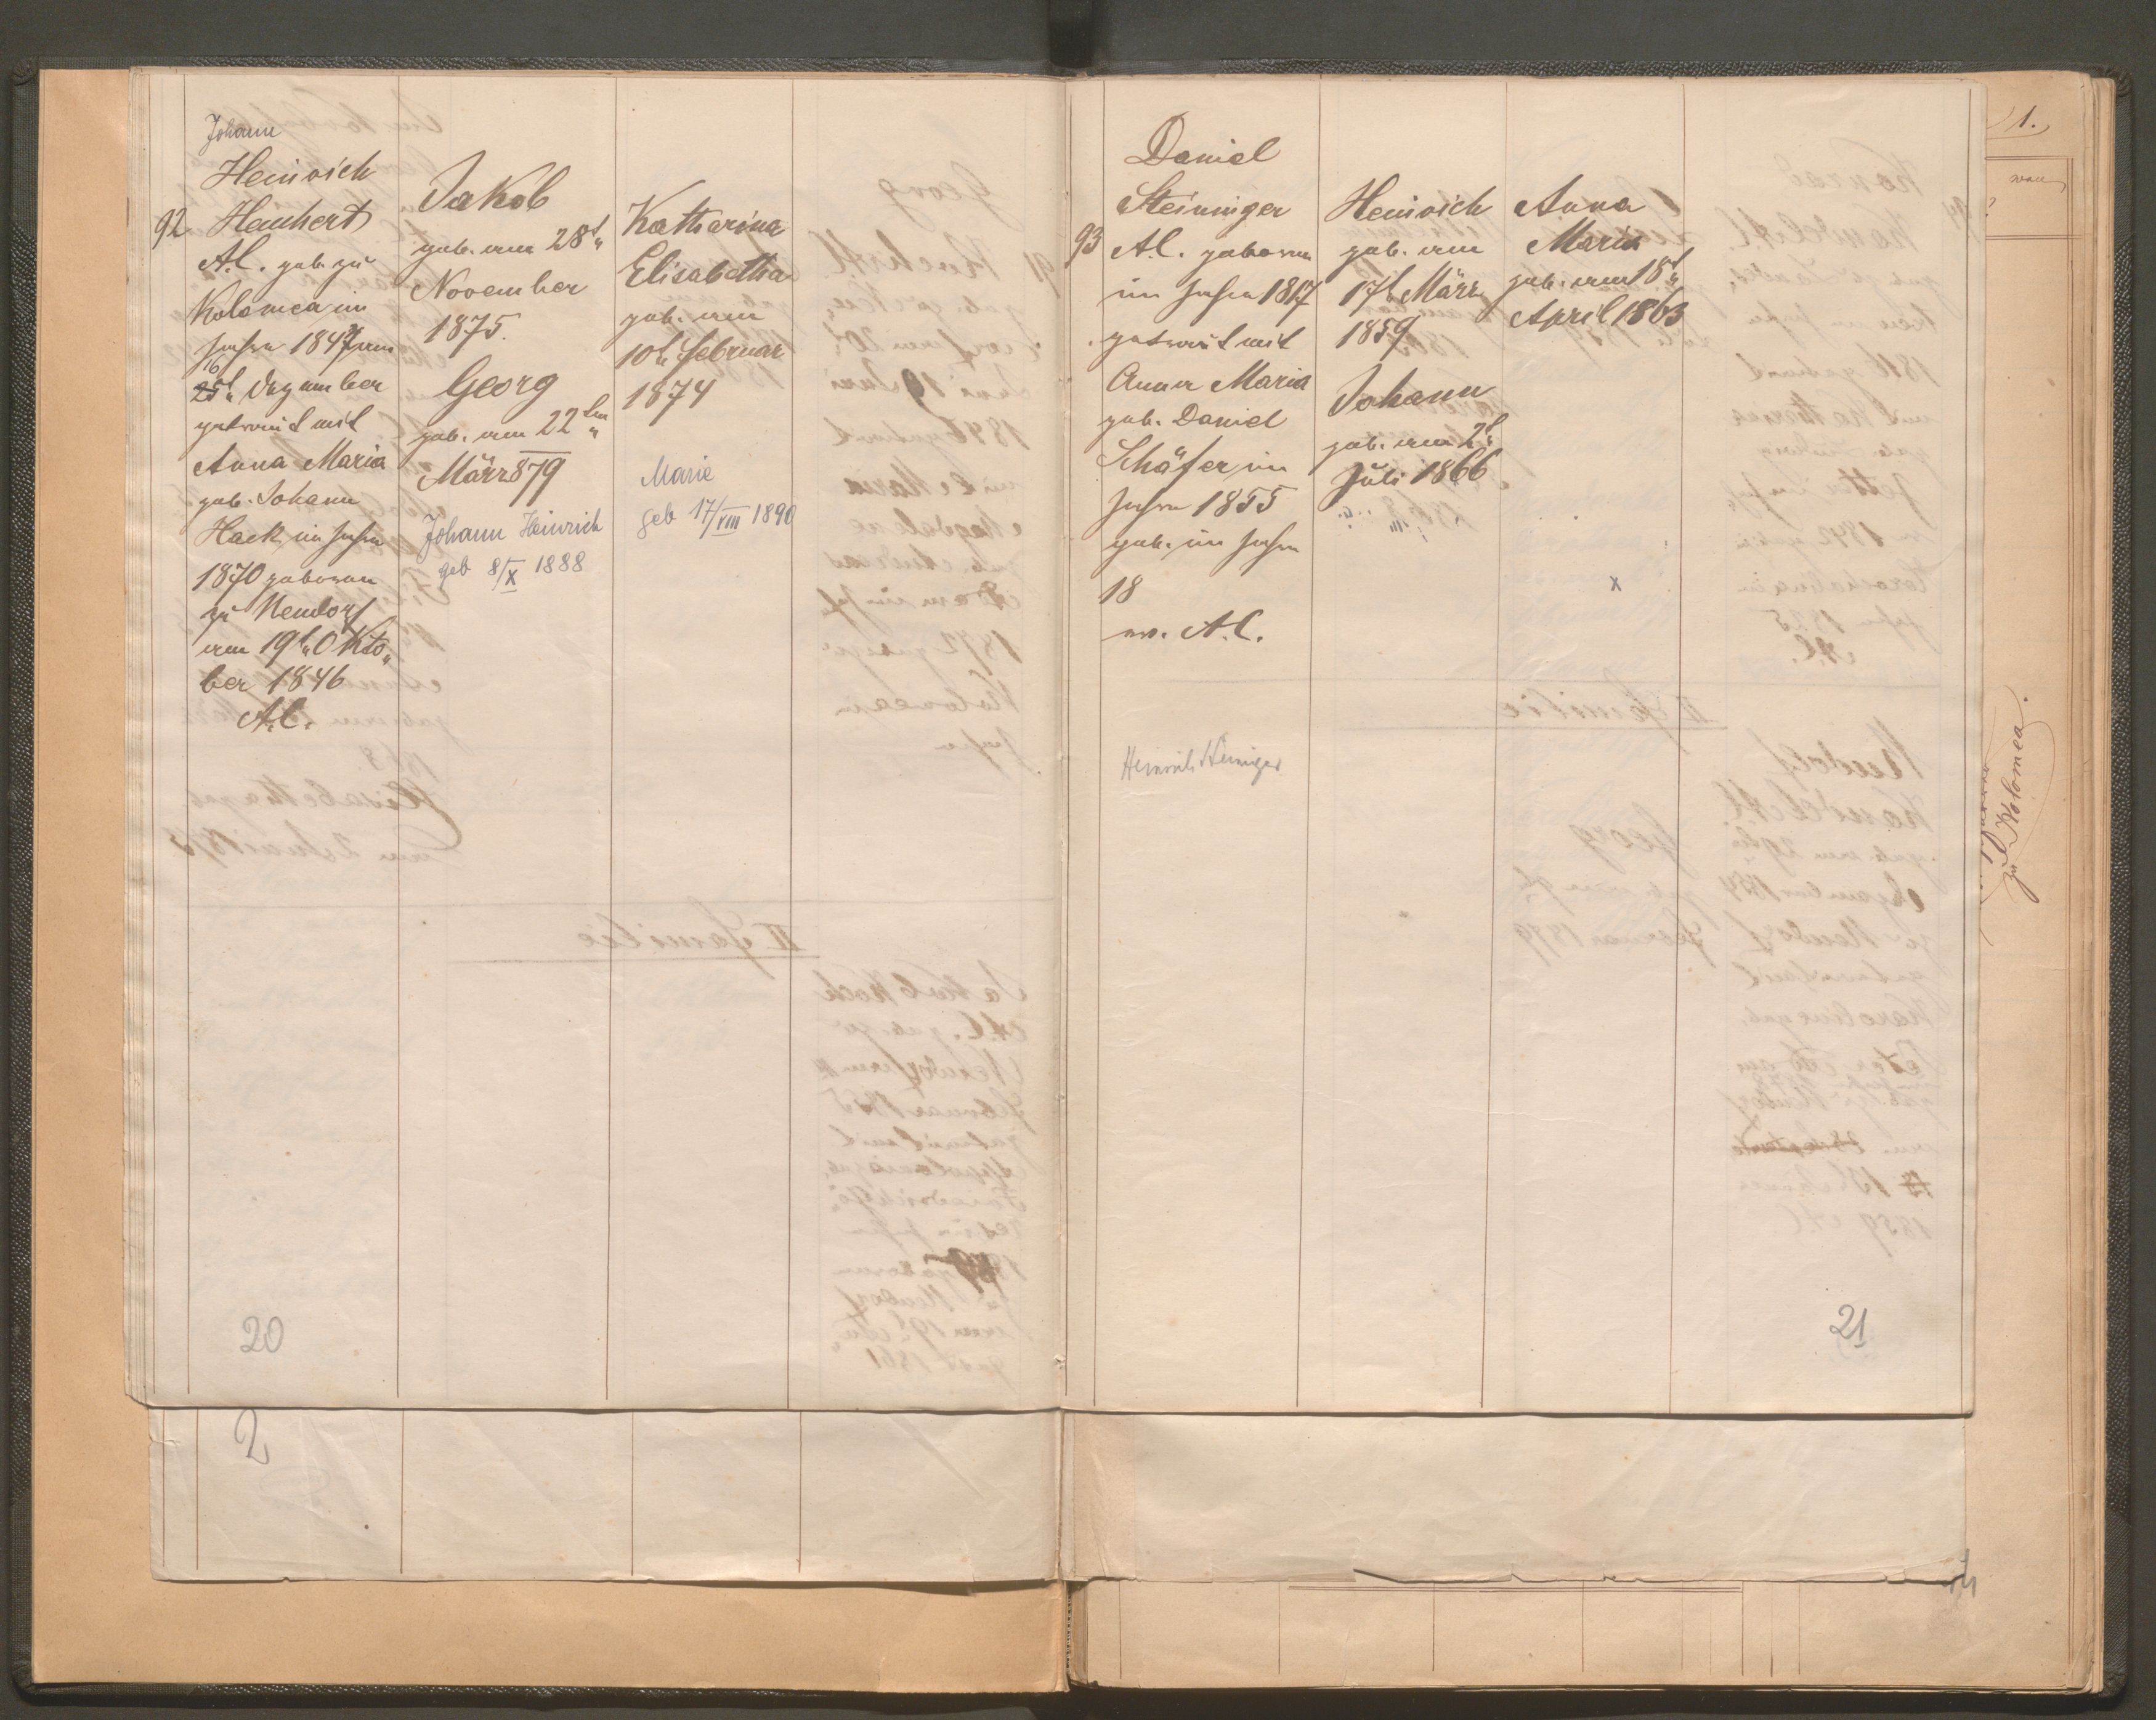 Johann
Heinrich
92. Hauhert
A.C. geb. zu
Kolomea im
Jahre 1847 am
16
25t. Dezember
getraut mit
Anna Maria
geb. Johann
Hack im Jahre
1870 geboren
zu Neudorf
am 19t. Okto„
ber 1846
A.C.
Jakob
geb. am 28t.
November
1875.
Georg
geb. am 22ten
März 879
Johann Heinrich
geb 8/X 1888
Katharina
Elisabetha
geb. am
10t. Februar
1874
Marie
geb 17/VIII 1890
20
2
Daniel
Steininger
93 A.C. geboren
im Jahre 1817
getraut mit
Anna Maria
geb. Daniel
Schäfer im
Jahre 1855
geb. im Jahre
18
A.C.
Heinrich
Heinrich
geb. am
17t. März
1859
Johann
geb. am 2t.
Juli 1866
Anna
Maria
geb. am 18t.
April 1863
x
21
1.
zu Kolomea.